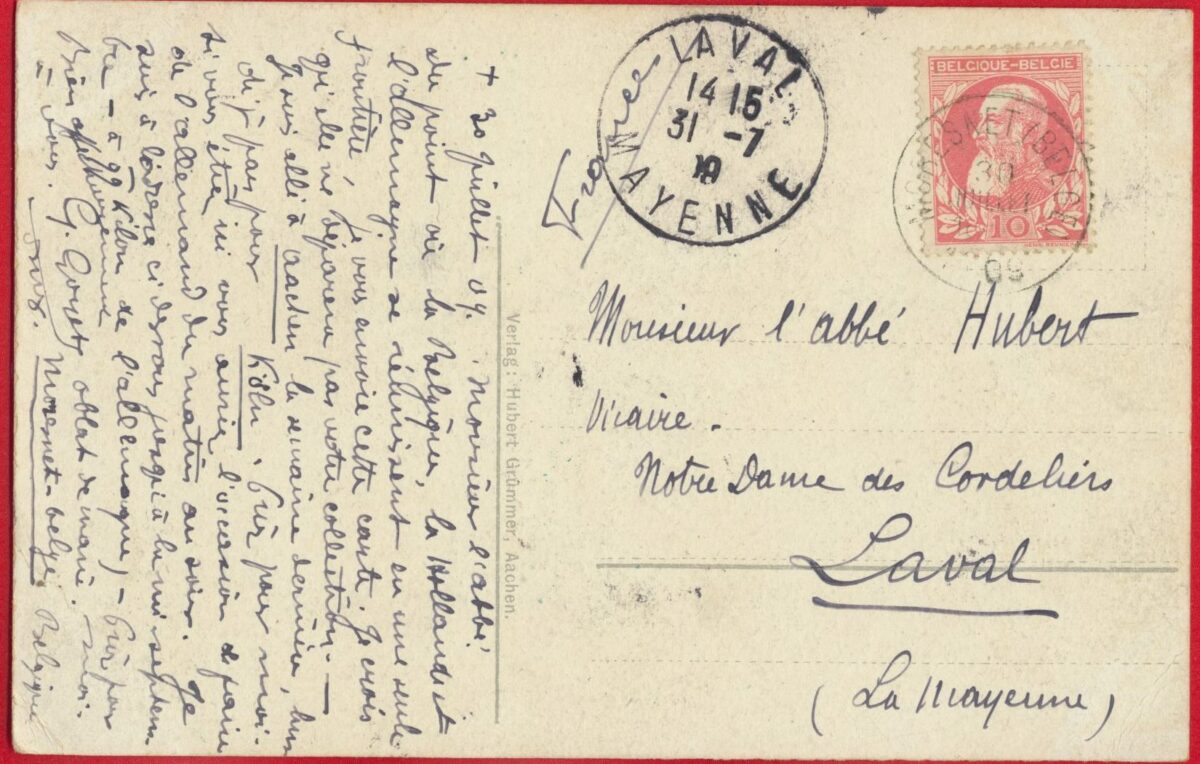 + 30 Juillet 09. Monsieur l'abbé.
Du point où la Belgique, la Hollande et
l'allemagne se réunissent en une seule
frontière, je vous envoie cette carte. Je crois
qu'elle ne déparera pas votre collection. —
Je suis allé à aachen la semaine dernière,
pas pour Köln. Priez pour moi.
Si vous étiez ici vous auriez l'occasion de faire
de l'allemand du matin au soir. Je
suis à l'adresse ci-dessous jusqu'à la mi-septem
bre — à 99 Kilom de l'allemagne, —
Bien affectueusement oblat de marie.
à vous.
Moresnet-belge Belgique
Verlag: Hubert Grümmer, Aachen.
France
LAVAL
14 15
31 -7
MAYENNE
BELGIQUE-BELGIE
10
MORESNET (BELGE)
30
09
Monsieur l'abbé Hubert
Vicaire.
Notre Dame des Cordeliers
Laval
(La Mayenne)